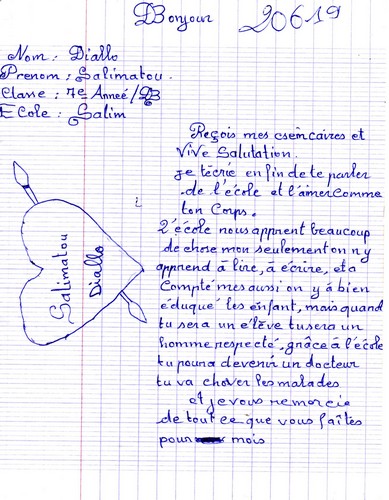 Bonjour 20619
Nom : Diallo
Prenom : Salimatou.
Classe : 7e Anneé/B
Ecole : Salim
Reçois mes csèncaires et
Vive Salutation.
je técrie en fin de te parler
de l'école et l'aimer comme
ton Corps.
L'école nous apprent beaucoup
de chose mon seulement on n'y
apprend à lire, à écrire, et a
Compté mes aussi on y à bien
éduqué les enfant, mais quand
tu sera un elève tu sera un
homme respecté. grâce à l'école
tu pourra devenir un docteur
tu va les malades
et je vous remercie
de tout ce que vous faîtes
pour mois
Salimatou
Diallo